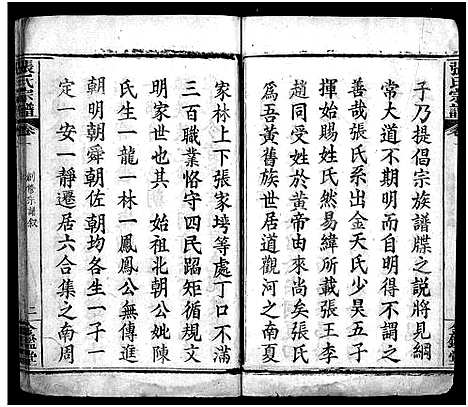 張氏宗譜
卷
子乃提倡宗族譜牒之說將見綱
常大道不期明而明得不謂之
善哉張氏系出金天氏少昊五子
揮始賜姓氏然易緯所載張王李
趙同受姓於黃帝由是尚矣張氏
爲吾黃舊族世居道觀河之南夏
家林上下張家塝等處丁口不滿
三百職業恪守四民蹈矩循規文
明家世也其 始祖北朝公妣陳
氏生一龍一林一鳳鳳公無傳進
朝明朝舜朝佐朝均各生一子一
定一安一靜遷居六合集之南周
張氏宗譜
卷一
創修宗譜敘
二
金鑑堂